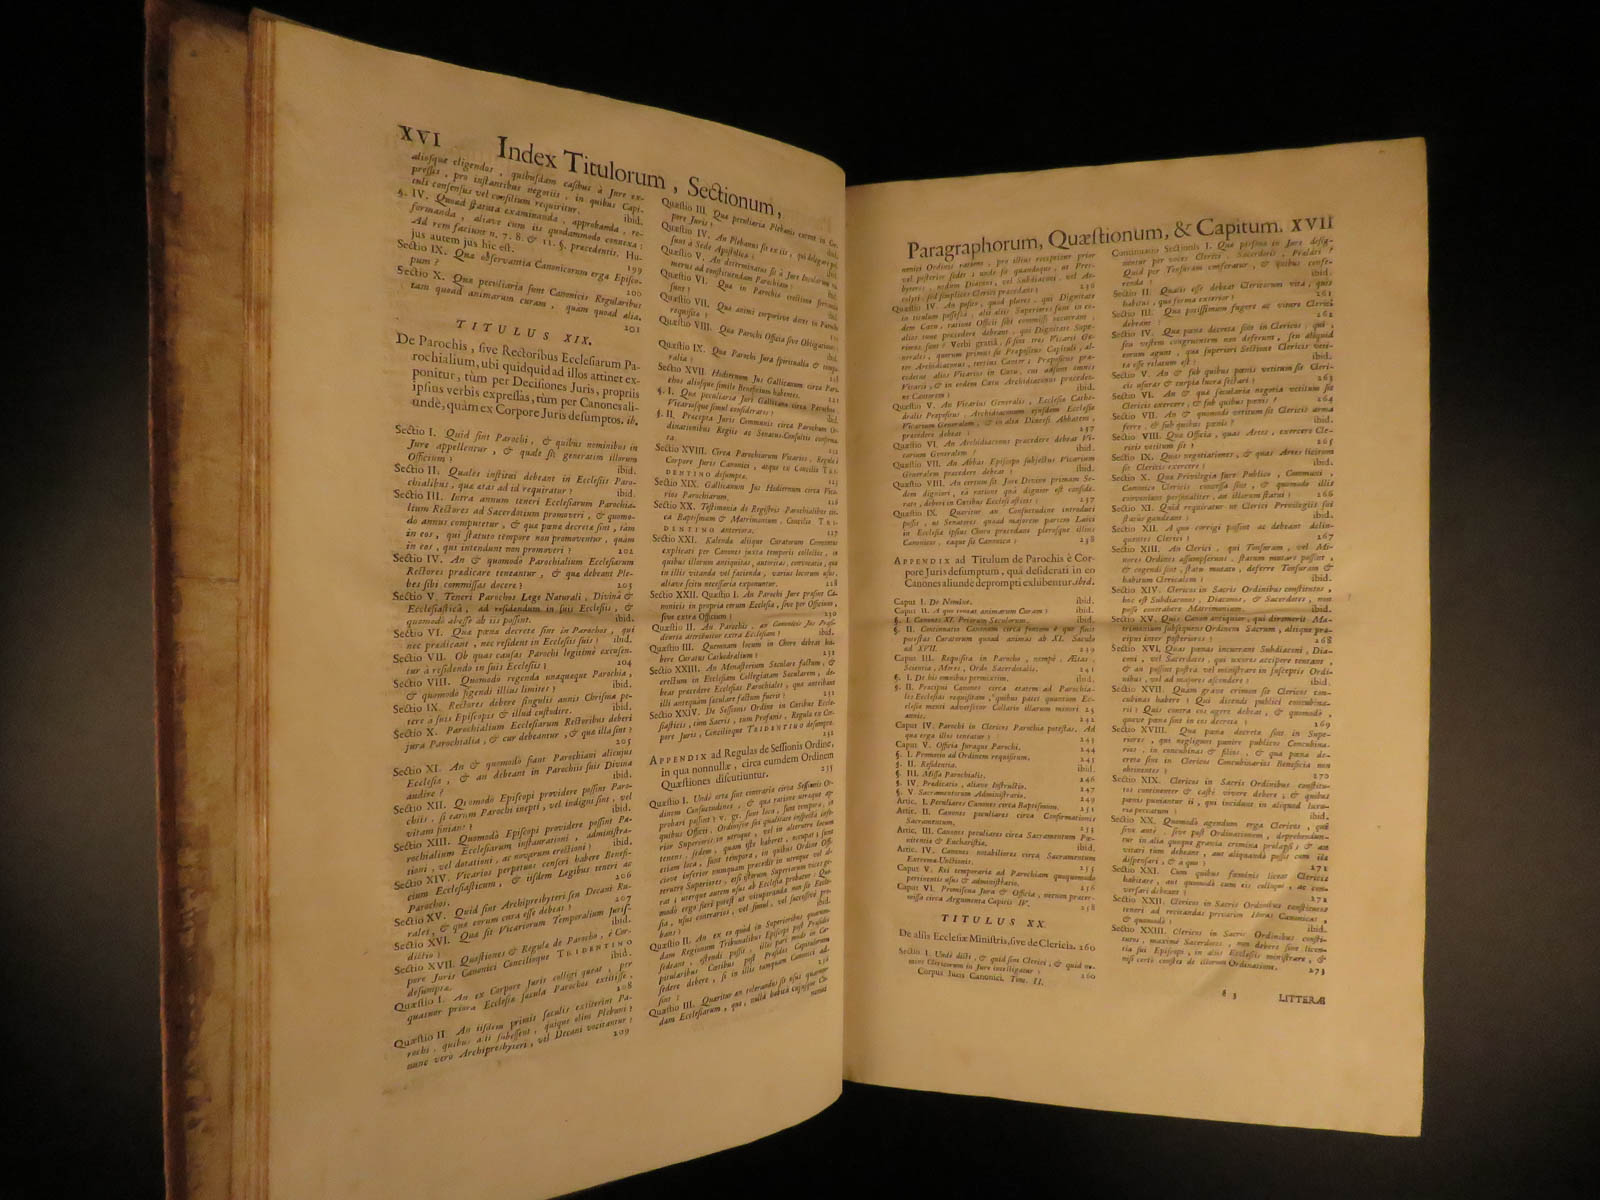 XVI Index Titulorum, Sectionum,
aliosque eligendos, quibusdam casibus à Jure ex-
pressis, pro instantibus negotiis, in quibus Capi-
tuli consensus vel consilium requiritur. ibid.
§. IV. Quoad statuta examinanda, approbanda, re-
formanda, aliave cum iis quodammodo connexa:
Ad rem faciunt n. 7. 8. & 11. §. præcedentis. Hu-
jus autem jus hic est. 199
Sectio IX. Quæ observantia Canonicorum erga Episco-
pum? 200
Sectio X. Quæ peculiaria sunt Canonicis Regularibus
tam quoad animarum curam, quam quoad alia.
201
TITULUS XIX.
De Parochis, sive Rectoribus Ecclesiarum Pa-
rochialium, ubi quidquid ad illos attinet ex-
ponitur, tùm per Decisiones Juris, propriis
ipsius verbis expressas, tùm per Canones ali-
unde, quam ex Corpore Juris desumptos. ib.
Sectio I. Quid sint Parochi, & quibus nominibus in
Jure appellentur, & quale sit generatim illorum
Officium? ibid.
Sectio II. Quales institui debeant in Ecclesiis Paro-
chialibus, quæ ætas ad id requiratur? ibid.
Sectio III. Intra annum teneri Ecclesiarum Parochia-
lium Rectores ad Sacerdotium promoveri, & quomo-
do annus computetur, & quæ pœna decreta sint, tàm
in eos, qui statuto tempore non promoventur, quàm
in eos, qui intendunt non promoveri? 202
Sectio IV. An & quomodo Parochialium Ecclesiarum
Rectores prædicare teneantur, & quæ debeant Ple-
bes sibi commissas docere? 203
Sectio V. Teneri Parochos Lege Naturali, Divinâ &
Ecclesiasticâ, ad residendum in suis Ecclesiis, &
quomodo abesse ab iis possint. ibid.
Sectio VI. Quæ pœnæ decretæ sint in Parochos, qui
nec prædicant, nec resident in Ecclesiis suis? ibid.
Sectio VII. Ob quas causas Parochi legitimè excusen-
tur à residendo in suis Ecclesiis? 204
Sectio VIII. Quomodo regenda unaquæque Parochia,
& quomodo figendi illius limites? ibid.
Sectio IX. Rectores debere singulis annis Chrisma pe-
tere à suis Episcopis & illud custodire. ibid.
Sectio X. Parochialium Ecclesiarum Rectoribus deberi
jura Parochialia, & cur debeantur, & quæ illa sint?
205
Sectio XI. An & quomodo fiant Parochiani alicujus
Ecclesiæ, & an debeant in Parochiis suis Divina
audire? ibid.
Sectio XII. Quomodò Episcopi providere possint Paro-
chiis, si earum Parochi inepti, vel indigni sint, vel
vitam finiant? ibid.
Sectio XIII. Quomodò Episcopi providere possint Pa-
rochialium Ecclesiarum instaurationi, administra-
tioni, vel dotationi, ac novarum erectioni? ibid.
Sectio XIV. Vicarios perpetuos censeri habere Benefi-
cium Ecclesiasticum, & iisdem Legibus teneri ac
Parochos. 206
Sectio XV. Quid sint Archipresbyteri seu Decani Ru-
rales, & quæ eorum cura esse debeat? 207
Sectio XVI. Quæ sit Vicariorum Temporalium Juris-
dictio? ibid.
Sectio XVII. Quæstiones & Regulæ de Parocho, è Cor-
pore Juris Canonici Concilioque TRIDENTINO
desumptæ. ibid.
Quæstio I. An ex Corpore Juris colligi queat, per
quatuor priora Ecclesiæ sæcula Parochos extitisse,
208
Quæstio II. An iisdem primis sæculis extiterint Pa-
rochi, quibus alii subessent, quique olim Plebani?
nunc verò Archipresbyteri, vel Decani vocitantur?
209
Quæstio III. Quæ peculiaria Plebanis curent in Cor-
pore Juris?
Quæstio IV. An Plebanus sit ex iis, qui delegari pos-
sunt à Sede Apostolica?
Quæstio V. An determinatus sit à Jure Secularium nu-
merus ad constituendam Parochiam?
Quæstio VI. Quæ in Parocho
sunt?
Quæstio VII. Quæ animi corporisve dotes in Parocho
requisitæ?
Quæstio VIII. Quæ Parochi Officia sive Obligationes?
Quæstio IX. Quæ Parochi Jura spiritualia & tempo-
ralia?
Sectio XVII. Hodiernum Jus Gallicanum circa Paro-
chos aliosque simile Beneficium habentes. 221
§. I. Quæ peculiaria Jure Gallicano circa Parochos,
Vicariosque simul considerata? ibid.
§. II. Præcepta Juris Communis circa Parochum Or-
dinationibus Regiis ac Senatus-Consultis confirma-
ta.
Sectio XVIII. Circa Parochorum Vicarios, Regulæ è
Corpore Juris Canonici, atque ex Concilio TRI-
DENTINO desumptæ.
Sectio XIX. Gallicanum Jus Hodiernum circa Vica-
rios Parochiarum. 226
Sectio XX. Testimonia de Registris Parochialibus cir-
ca Baptismum & Matrimonium, Concilio TRI-
DENTINO anteriora. 227
Sectio XXI. Kalendæ alique Curatorum Conventus
explicati per Canones juxta temporis collectos, in
quibus illorum antiquitas, autoritas, convocatio, quæ
in illis vitanda vel facienda, varius locorum usus,
aliave scitu necessaria exponuntur. 228
Sectio XXII. Quæstio I. An Parochi Jure præsint Ca-
nonicis in propria eorum Ecclesia, sive per Officium,
sive extra Officium? 230
Quæstio II. An Parochis, an Canonicis Jus Præse-
dentia attribuitur extra Ecclesiam? ibid.
Quæstio III. Quemnam locum in Choro debeat ha-
bere Curatus Cathedralium? 231
Sectio XXIII. An Monasterium Seculare factum, &
erectum in Ecclesiam Collegiatam Secularem, de-
beat præcedere Ecclesias Parochiales, quæ antribant
illi antequam seculare factum fuerit? 231
Sectio XXIV. De Sessionis Ordine in Cœtibus Eccle-
siasticis, tùm Sacris, tùm Profanis, Regulæ ex Cor-
pore Juris, Concilioque TRIDENTINO desumptæ.
232
APPENDIX ad Regulas de Sessionis Ordine,
in qua nonnullæ, circa eumdem Ordinem
Quæstiones discutiuntur. 235
Quæstio I. Unde orta sint contraria circa Sessionis Or-
dinem Consuetudines, & qua ratione utraque ap-
probari possit? v. gr. sunt loca, sunt tempora, in
quibus Officii, Ordinisve sui qualitate inspectâ infe-
rior Superioris in utroque, vel in alterutro locum
tenens, sedem, quam iste haberet, occupat; sunt
etiam loca, sunt tempora, in quibus Ordine Offi-
ciove inferior nunquam præcessit in utroque vel al-
terutro Superiores, etsi istorum Superiorum vices ge-
rat; uterque autem usus ab Ecclesia probatur: Quo-
modo ergo fieri potest ut vituperanda non sit Eccle-
sia, usus contrarios, vel simul, vel successivè pro-
bans? ibid.
Quæstio II. An ex eo quòd in Superioribus quarum-
dam Regionum Tribunalibus Episcopi post Præsides
sedeant, ostendi possit, illos pari modo in Co-
pitularibus Cœtibus post Præsides Capitulorum
sedere debere, si in illis tanquam Canonici ad-
sint? 236
Quæstio III. Quæritur an tolerandus sit usus quarum-
dam Ecclesiarum, quo, nullâ habitâ cujusque Ca-
nonici
Paragraphorum, Quæstionum, & Capitum. XVII
nonici Ordinis ratione, pro illius receptione prior
vel posterior sedet; unde fit quandoque, ut Pres-
byteri, nedum Diaconi, vel Subdiaconi, vel Ac-
colyti, sed simplices Clerici præcedant? 236
Quæstio IV. An possit, quòd plures, qui Dignitate
in titulum possessâ, alii aliis Superiores sunt in eo-
dem Cœtu, ratione Officii sibi commissi occurrant,
alios tunc præcedere debeant, qui Dignitate Supe-
riores sunt? Verbi gratiâ, si sint tres Vicarii Ge-
nerales, quorum primus sit Præpositus Capituli, al-
ter Archidiaconus, tertius Cantor; Præpositus præ-
cederat alios Vicarios in Cœtu, cui adsunt omnes
Vicarii, & in eodem Cœtu Archidiaconus præcedet-
ne Cantorem? ibid.
Quæstio V. An Vicarius Generalis, Ecclesiæ Cathe-
dralis Præpositus, Archidiaconum ejusdem Ecclesiæ
Vicarium Generalem, & in alia Diœcesi Abbatem,
præcedere debeat? 237
Quæstio VI. An Archidiaconus præcedere debeat Vi-
carium Generalem? ibid.
Quæstio VII. An Abbas Episcopo subjectus Vicarium
Generalem præcedere debeat? ibid.
Quæstio VIII. An certum sit Jure Divino primam Se-
dem digniori, eâ ratione quâ dignior est conside-
rato, deberi in Cœtibus Ecclesiasticis? 237
Quæstio IX. Quæritur an Consuetudine introduci
possit, ut Senatores quoad majorem partem Laici
in Ecclesia ipsius Choro præcedant plerosque illius
Canonicos, eaque sit Canonica? 238
APPENDIX ad Titulum de Parochis è Cor-
pore Juris desumptum, quâ desiderati in eo
Canones aliunde deprompti exhibentur. ibid.
Caput I. De Nomine. ibid.
Caput II. A quo tenetur animarum Cura? ibid.
§. I. Canones XI. Priorum Sæculorum. ibid.
§. II. Contincatio Canonum circa fontem è quo fluit
potestas Curatorum quoad animas ab XI. Sæculo
ad XVII. 239
Caput III. Requisita in Parocho, nempè, Ætas,
Scientia, Mores, Ordo Sacerdotalis. 241
§. I. De his omnibus permixtim. ibid.
§. II. Præcipui Canones circa ætatem ad Parochia-
les Ecclesias requisitam, quibus patet quantum Ec-
clesiæ menti adversetur Collatio illarum minori 25
annis. 242
Caput IV. Parochi in Clericos Parochiæ potestas. Ad
quæ erga illos tenetur? 243
Caput V. Officia Juraque Parochi. 244
§. I. Promotio ad Ordinem requisitum. 245
§. II. Residentia. ibid.
§. III. Missa Parochialis. 246
§. IV. Prædicatio, aliave Instructio. 247
§. V. Sacramentorum Administratio. 249
Artic. I. Peculiares Canones circa Baptismum. 251
Artic. II. Canones peculiares circa Confirmationis
Sacramentum. 253
Artic. III. Canones peculiares circa Sacramentum Pœ-
nitentiæ & Eucharistiæ, ibid.
Artic. IV. Canones notabiliores circa Sacramentum
Extremæ-Unctionis. 255
Caput V. Rei temporariæ ad Parochiam quoquomodo
pertinentis usus & administratio. 256
Caput VI. Promiscua Jura & Officia, nec non præter-
missa circa Argumenta Capitis IV. 258
TITULUS XX.
De aliis Ecclesiæ Ministris, sive de Clericis. 260
Sectio I. Unde dicti, & quid sint Clerici; & quid no-
mine Clericorum in Jure intelligatur? 260
Corpus Juris Canonici. Tom. II.
Continuatio Sectionis I. Quæ personæ in Jure desig-
nentur per voces Clerici, Sacerdotis, Prælati?
Quid per Tonsuram conferatur, & quibus confe-
renda? ibid.
Sectio II. Qualis esse debeat Clericorum vita, quis
habitus, quæ forma exterior? 261
Sectio III. Quid potissimùm fugere ac vitare Clerici
debeant? 262
Sectio IV. Quæ pœnæ decretæ sint in Clericos, qui,
seu vestem congruentem non deferunt, seu aliquid
eorum agunt, quæ superiori Sectione Clericis veti-
ta esse relatum est? ibid.
Sectio V. An & sub quibus pœnis vetitum sit Cleri-
cis usuras & turpia lucra sectari? 263
Sectio VI. An & quæ secularia negotia vetitum sit
Clericis exercere, & sub quibus pœnis? 264
Sectio VII. An & quomodo vetitum sit Clericis arma
ferre, & sub quibus pœnis? ibid.
Sectio VIII. Quæ Officia, quas Artes, exercere Cle-
ricis vetitum sit? 265
Sectio IX. Quas negotiationes, & quas Artes licitum
sit Clericis exercere? ibid.
Sectio X. Quæ Privilegia Jure Publico, Communi,
Canonico Clericis concessa sint, & quomodo illis
conveniant personaliter, an illorum statui? 266
Sectio XI. Quid requiratur ut Clerici Privilegiis sui
status gaudeant? ibid.
Sectio XII. A quo corrigi possint ac debeant delin-
quentes Clerici? 267
Sectio XIII. An Clerici, qui Tonsuram, vel Mi-
nores Ordines assumpserunt, statum mutare possint,
& cogendi sint, statu mutato, deferre Tonsuram &
habitum Clericalem? ibid.
Sectio XIV. Clericos in Sacris Ordinibus constitutos,
hoc est Subdiaconos, Diaconos, & Sacerdotes, non
posse contrahere Matrimonium. ibid.
Sectio XV. Quis Canon antiquior, qui diremerit Ma-
trimonium subsequens Ordinem Sacrum, aliique præ-
cipui inter posteriores? 268
Sectio XVI. Quas pœnas incurrant Subdiaconi, Dia-
coni, vel Sacerdotes, qui uxores accipere tentant,
& an possint postea vel ministrare in susceptis Ordi-
nibus, vel ad majores ascendere? ibid.
Sectio XVII. Quàm grave crimen sit Clericos con-
cubinas habere? Qui dicendi publici concubina-
rii? Quis contra eos agere debeat, & quomodo,
quæve pœnæ sint in eos decretæ? 269
Sectio XVIII. Quæ pœnæ decretæ sint in Supe-
riores, qui negligunt punire publicos Concubina-
rios, in concubinas & filios, & quæ pœnæ de-
cretæ sint in Clericos Concubinarios Beneficia non
obtinentes? 270
Sectio XIX. Clericos in Sacris Ordinibus constitu-
tos continenter & castè vivere debere; & quibus
pœnis puniantur ii, qui incidunt in aliquod luxu-
riæ peccatum? ibid.
Sectio XX. Quomodò agendum erga Clericos, qui
sive ante, sive post Ordinationem, deprehendun-
tur in alia quæque gravia crimina prolapsi; & an
vitari tùm debeant, aut aliquando possit cum iis
dispensari, & à quo? 271
Sectio XXI. Cum quibus fœminis liceat Clericis
habitare, aut quomodò cum eis colloqui, ac con-
versari debeant? 272
Sectio XXII. Clericos in Sacris Ordinibus constitutos
teneri ad recitandas privatim Horas Canonicas,
& quomodò? ibid.
Sectio XXIII. Clericos in Sacris Ordinibus consti-
tutos, maximè Sacerdotes, non debere sine licen-
tia sui Episcopi, in aliis Ecclesiis ministrare, &
nisi certò constet de illorum Ordinatione. 273
§ 3 LITTERÆ